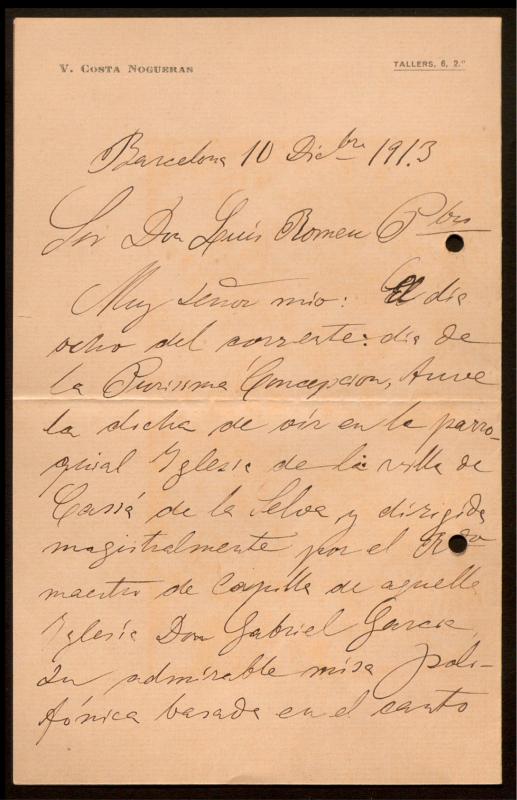 V. COSTA NOGUERAS
TALLERS, 6, 2.º
Barcelona 10 Dicbre 1913
Sor Don Luis Romeu Pbro
Muy señor mio: El dia
ocho del corrente: dia de
la Purissima Concepcion, tuve
la dicha de oir en la parro-
quial Iglesia de la villa de
Cassá de la Selva y dirigida
magistralmente por el Rdo
maestro de Capilla de aquella
Iglesia Don Gabriel Garcia,
su admirable misa poli-
fónica basada en el canto